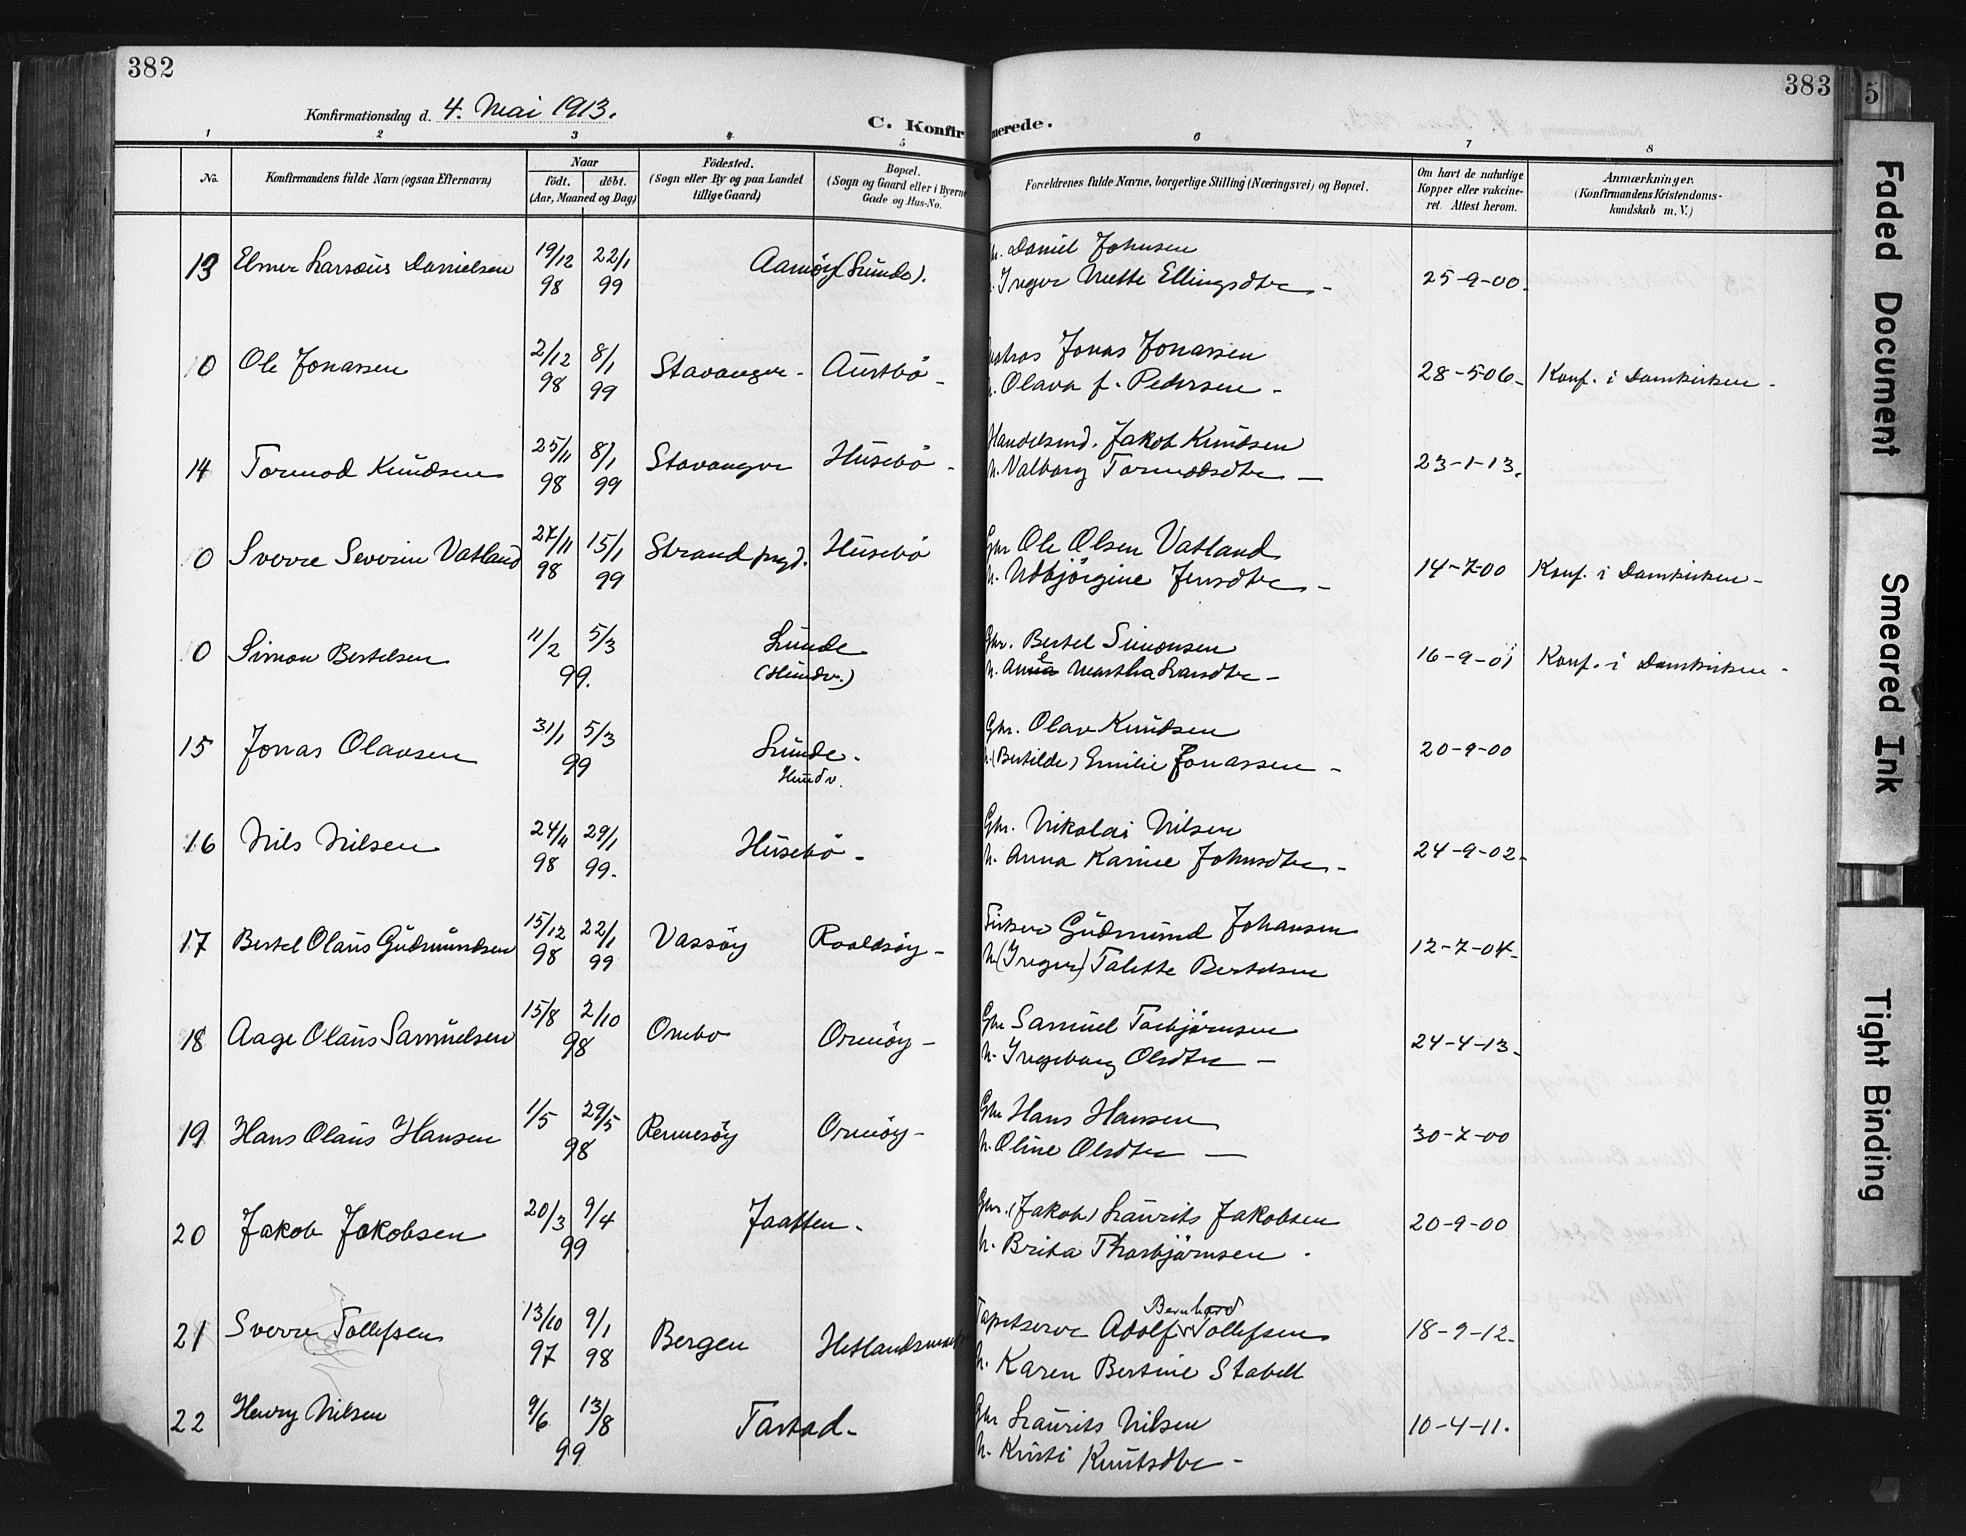 382
383
5
Konfirmationsdag d. 4. Mai 1913.
C. Konfirmerede.
1 2 3 4 5 6 7 8
No.
Konfirmandens fulde Navn (ogsaa Efternavn)
Naar
födt. döbt.
(Aar, Maaned og Dag)
Födested.
(Sogn eller By og paa Landet
tillige Gaard)
Bopæl.
(Sogn og Gaard eller i Byerne
Gade og Hus-No.
Forældrenes fulde Navne, borgerlige Stilling (Næringsvei) og Bopæl.
Om havt de naturlige
Kopper eller vakcine-
ret. Attest herom.
Anmærkninger.
(Konfirmandens Kristendoms-
kundskab m. V.)
13 Elmer Larsæus Danielsen 19/12 98 22/1 99 Aamöy (Lunde). Daniel Johnsen
Inger Mette Ellingsdtr - 25-9-00.
0 Ole Jonassen 2/12 98 8/1 99 Stavanger - Austbö - Jonas Jonassen
Olava f. Pedersen - 28-5-06- Konf. i Domkirken -
14 Tormod Knudsen 25/11 98 8/1 99 Stavanger Husebö - Handelsmd. Jakob Knudsen
h. Valborg Tormodsdtr - 23-1-13.
0 Sverre Severin Vatland 27/11 98 15/1 99 Strand prgd. Husebö Gbr Ole Olsen Vatland
h. Udbjörgine Jensdtr - 14-7-00 Konf. i Domkirken -
0 Simon Bertelsen 11/2 5/3 99. Lunde (Hundv.) Gbr. Bertel Simonsen
h. Martha Larsdtr - 16-9-01 Konf. i Domkirken -
15 Jonas Olavsen 31/1 5/3 99 Lunde. Hundv. Gbr. Olav Knudsen
h. (Bertilde) Emilie Jonassen - 20-9-00
16 Nils Nilsen 24/11 98 29/1 99. Husebö - Gbr. Nikolai Nilsen
h. Anna Karine Johnsdtr - 24-9-02-
17 Bertel Olaus Gudmundsen 15/12 98 22/1 99 Vassöy Roaldsöy - Fisker Gudmund Johansen
h (Inger) Talette Bertelsen 12-7-04-
18 Aage Olaus Samuelsen 15/8 2/10 98 Ombo Ormöy - Gbr Samuel Torbjörnsen
h. Ingeborg Olsdtr - 24-4-13-
19 Hans Olaus Hansen 1/5 29/5 98 Rennesöy Ormöy - Gbr Hans Hansen
h. Oline Olsdtr - 30-7-00
20 Jakob Jakobsen 20/3 9/4 99 Jaatten. Gbr. (Jakob) Laurits Jakobsen
h. Brita Thorbjörnsen 20-9-00
21 Sverre Tollefsen 13/10 97 9/1 98 Bergen Tapetserer Adolf Bernhard Tollefsen
h. Karen Bertine Stabell 18-9-12-
22 Henry Nilsen 9/6 13/8 99 Tastad - Gbr Laurits Nilsen
h. Kristi Knutsdtr - 10-4-11.
Faded Document
Smeared Ink
Tight Binding